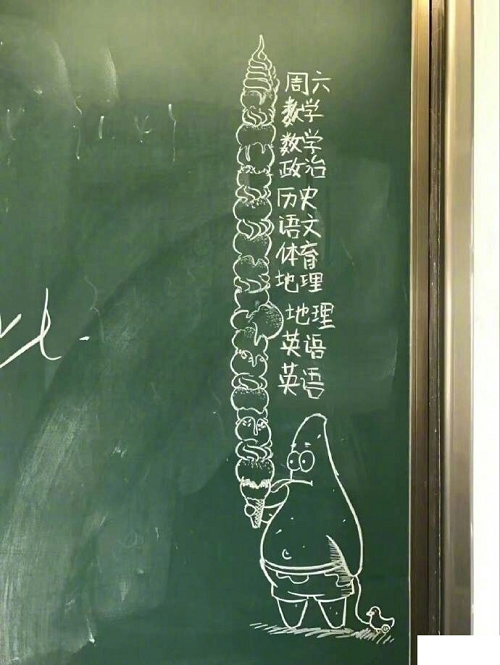 周六
数学
数学
政治
历史
语文
体育
地理
地理
英语
英语